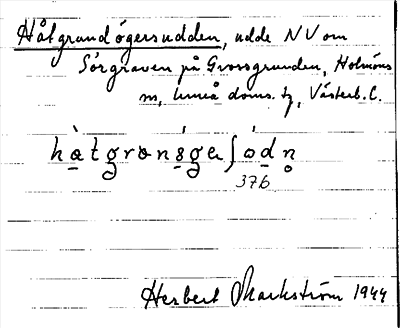 Hålgrundögersudden, udde NV om
Sörgraven på Grossgrunden, Holmöns
sn, Umeå doms. tg, Västerb. l.
hàtgronsgeʃodn
37b
Herbert Markström 1944